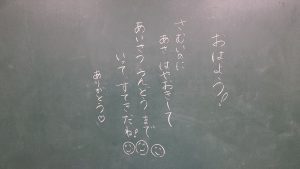 おはよう!
さむいのに
あさ はやおきして
あいさつうんどう まで
いって すてきだね!
ありがとう♡